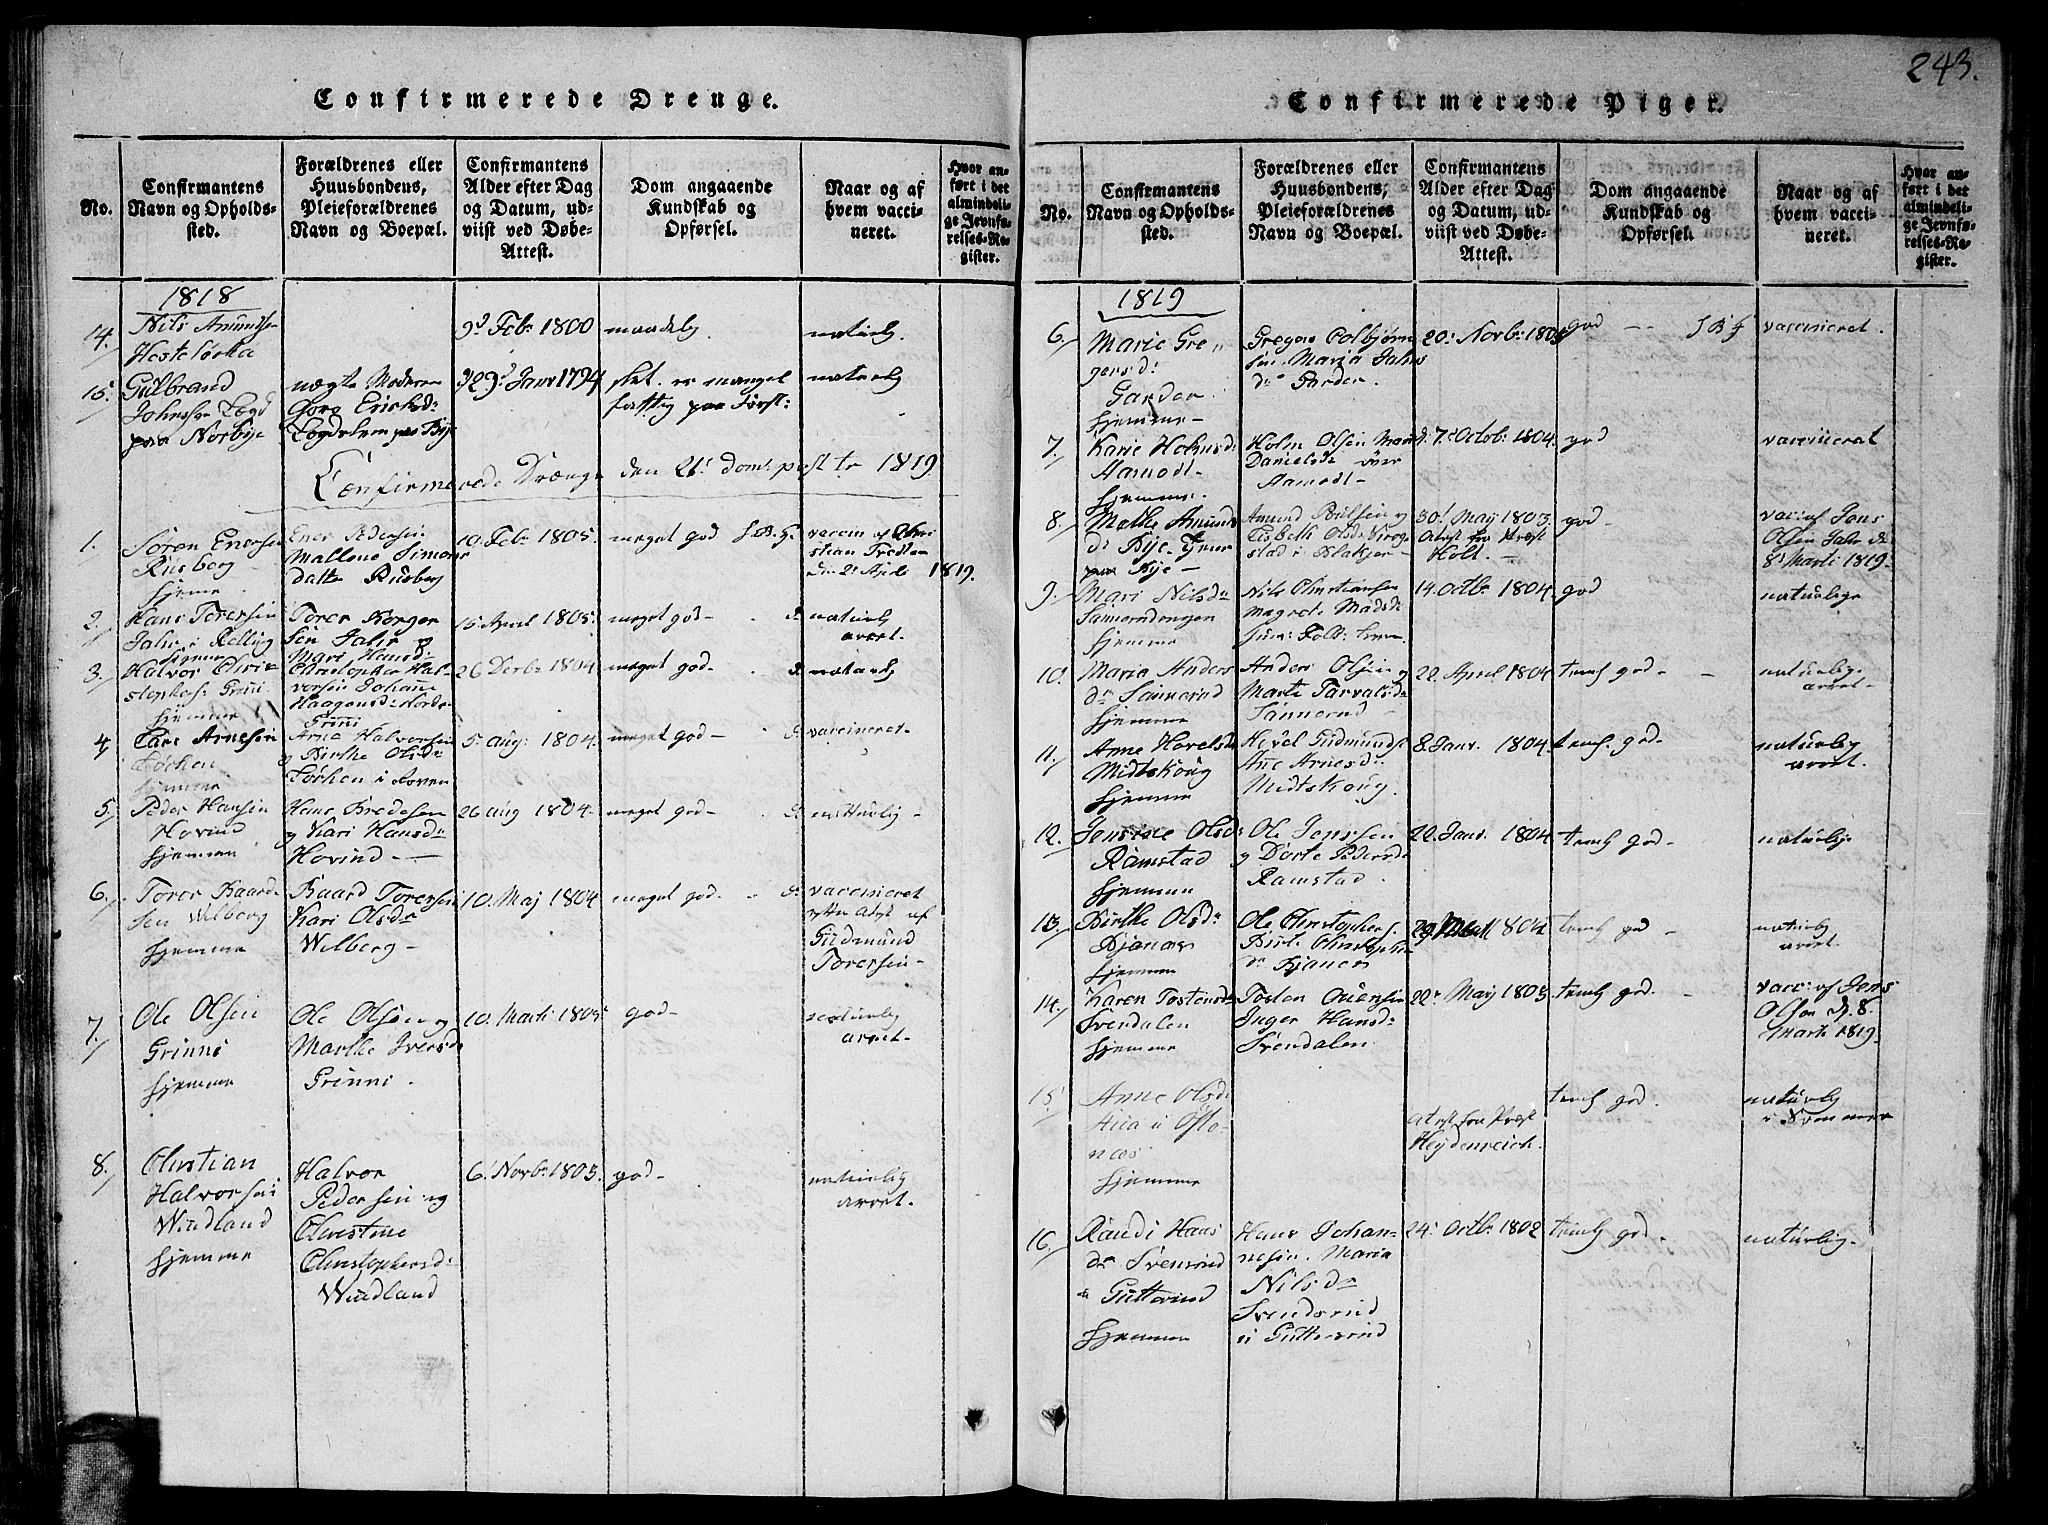 243.
Confirmerede Drenge.
No.
Confirmantens
Navn og Opholds-
sted.
Forældrenes eller
Huusbondens,
Pleieforældrenes
Navn og Boepæl.
Confirmantens
Alder efter Dag
og Datum, ud-
viist ved Døbe-
Attest.
Dom angaaende
Kundskab og
Opførsel.
Naar og af
hvem vacci-
neret.
Hvor an-
ført i det
almindeli-
ge Jevnfø-
relses-Re-
gister.
1818
14.
Nils Amundse
9d Feb: 1800
maadelig
naturlig
15.
Gulbrand
Johnsen Løgd
paa Norbye
nægte Moderen
Goro Erichsd:
29d Janr 1794
slet. er mangel
naturlig
Confirmerede Drænge den 21d dom: post tr 1819
1.
Søren Enersen
Rusberg
hjeme
Ener Pedersen
Mallene Simons
datter Rusberg
10 Feb: 1805.
meget god
vaccin af Chri
stian Fredten
1819.
2.
Hans Toresen
Jahr i Relling
hjeme
Torer Borger
sen Jahr og
Mari Hansd:
15 April 1805.
meget god-
naturlig
arret.
3.
Halvor Chri
stophers: Grini
hjemme
Christopher Hal-
versen Johane
Haagensd: Nordr-
Grini
26 Decbr 1804.
meget god-
naturlig
4.
Lars Arnesen
Tørhen
hjemme
Arne Halvorsen
og Birthe Olsd:
Tørhen i Roven
5. aug: 1804.
meget god-
vaccineret.
5.
Peder Hansen
Hovind
hjemme
Hans Bredesen
og Kari Hansd:
Hovind
26 aug 1804.
meget god
naturlig
6.
Torer Baard-
sen Wilberg
hjemme
Baard Torersen
Kari Olsdr
Wilberg-
10. Maj 1804
meget god-
vaccineret
efter Atest af
Gudmund
Toresen-
7.
Ole Olsen
Grinni
hjemme
Ole Olsen og
Marthe Iversd
Grinni.
10. Marti 1805
god-
naturlig
arret-
8.
Christian
Halvorsen
Windland
hjemme
Halvor
Pedersen og
Christine
Christophersd:
Windland
6' Novbr 1803.
god-
naturlig
arret.
Confirmerede Piger.
No.
Confirmantens
Navn og Opholds-
sted.
Forældrenes eller
Huusbondens,
Pleieforældrenes
Navn og Boepæl.
Confirmantens
Alder efter Dag
og Datum, ud-
viist ved Døbe-
Attest.
Dom angaaende
Kundskab og
Opførsel.
Naar og af
hvem vacci-
neret.
Hvor an-
ført i det
almindeli-
ge Jevnfø-
relses-Re-
gister.
1819
6.
Marie Gre-
gersd:
Garder
hjemme-
Gregers Colbjørn
sen. Maria Jahns
dr Garder.
20. Novbr: 1804
god
vaccineret.
7.
Karie Holmsd:
Aamodt
hjemme.
Holm Olsen Mari
Danielsdr over
Aamodt-
7d Octob: 1804.
god
vaccineret
8.
Malhe Amunds
dr Bye. tjener
paa Bye-
Amund Poulsen og
Lisbeth Olsdr
stad i Blakjer-
30! May 1803.
Atest fra Præst
Holt.
god-
vac: af Jens
Olsen Jahr d
8' Marti 1819.
9.
Mari Nilsdr
hjemme
Nils Christiansen
Magrete Madsdr
14. Octbr 1804
god
naturlige
10.
Maria Anders
dr Sannerud
hjemme
Anders Olsen og
Marte Tarvalsdr
Sannerud
22. April 1804
temlig god
naturlig-
arret-
11.
Anne Hovelsdr
Midtskoug
hjemme
Hovel Gudmunds
Anne Arnesdr
Midtskoug.
8. Janr. 1804
teml. god-
naturlig
arret.
12.
Jensine Olsd:
Ramstad
hjemme
Ole Jenssen
og Dorte Pedersdr
Ramstad.
22. Janr. 1804
temlig god-
naturlig
13.
Birthe Olsdr
Bjanæs
hjemme
Ole Christophers.
Birte Christophers
dr Bjanes
29 1804
temlig god
naturlig
arret.
14.
Karen Tostensdr
Svendalen
hjemme
Tosten
Inger Hansdr
Svendalen
22d May 1803
temlig god.
vacc: af Jens
Olsen d. 8.
Marti 1819.
15
Anne Olsd:
næs
hjemme
Atest fra Præst
Heydenreich.
temlig god.
naturlig
16.
Randi Hans
dr Svensrud
Gutterud
hjemme
Hans Johan-
nesen. Maria
Nilsdr
Svendsrud
24. Octbr 1802
temlig god.
naturlig-